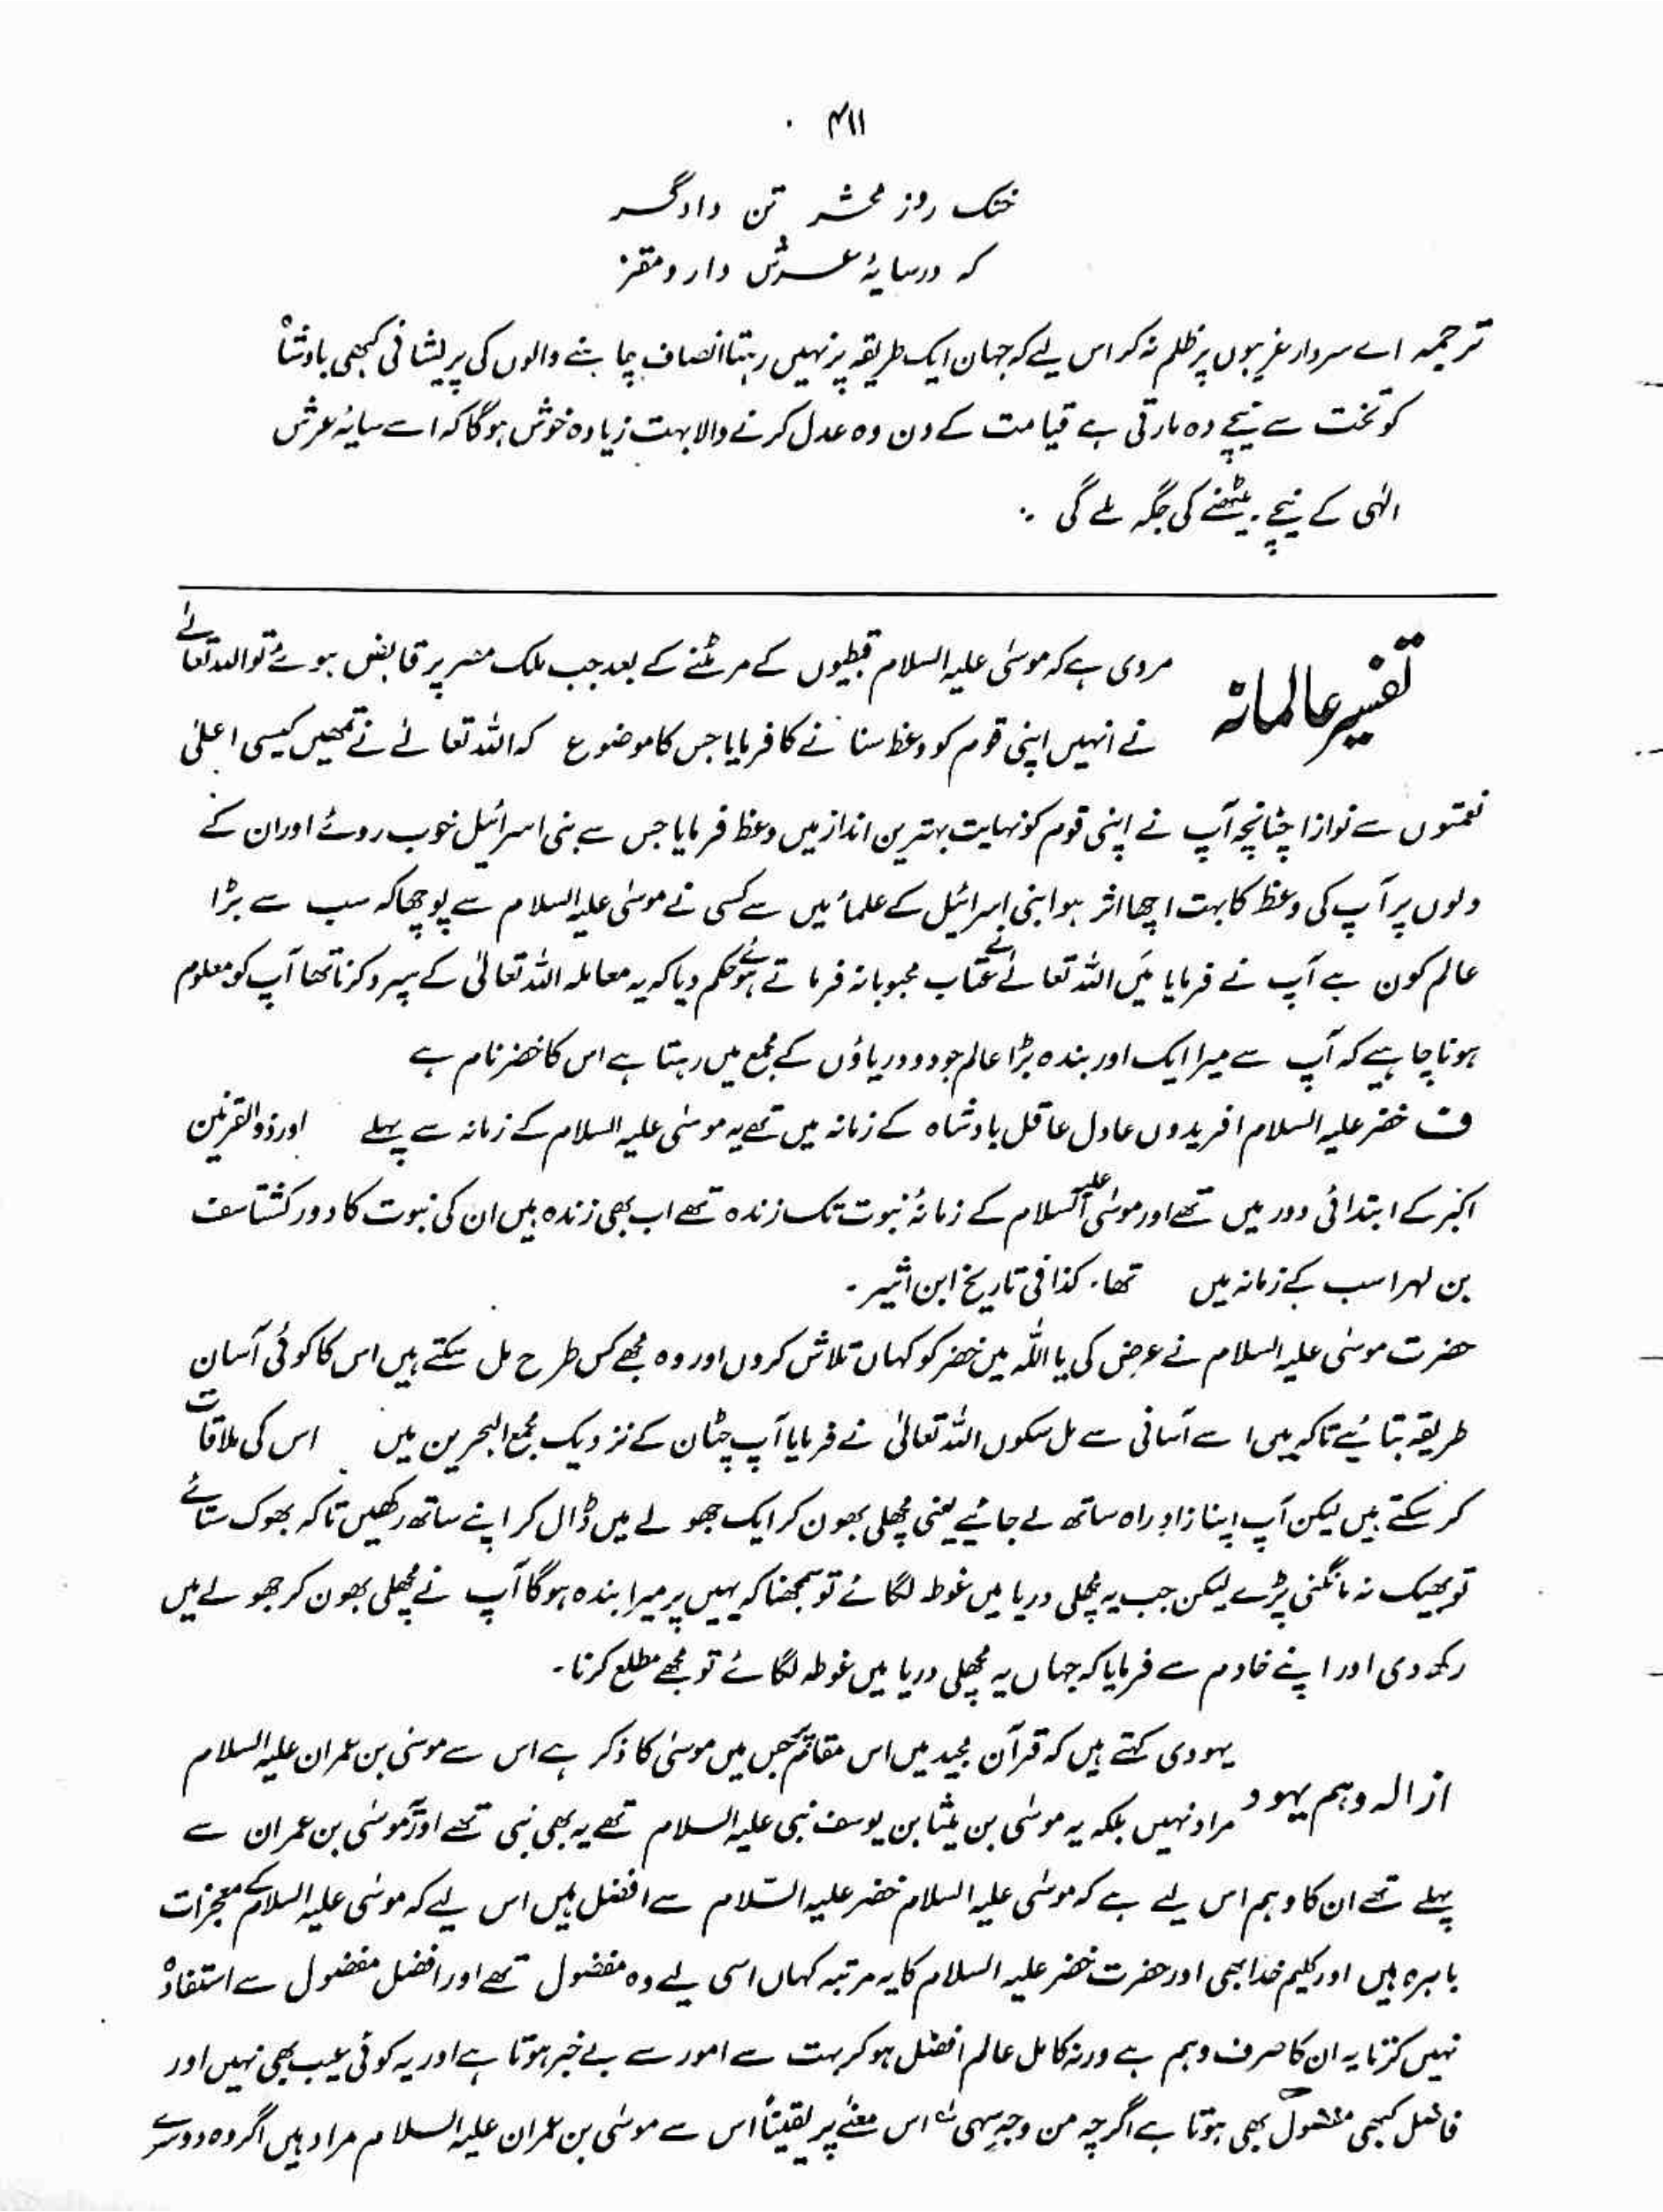 ۴۱۱
خنک روز محشر تن دادگر
که در سایۂ عرش دارد مقر
ترجمہ اے سردار غریبوں پر ظلم نہ کر اس لیے کہ جہان ایک طریقہ پر نہیں رہتا انصاف چاہنے والوں کی پریشانی کبھی بادشاہ
کو تخت سے نیچے دہ مارتی ہے قیامت کے دن وہ عدل کرنے والا بہت زیادہ خوش ہوگا کہ اسے سایۂ عرش
الٰہی کے نیچے بیٹھنے کی جگہ ملے گی ۔
تفسیر عالمانہ
مروی ہے کہ موسیٰ علیہ السلام قبطیوں کے مر مٹنے کے بعد جب ملک مصر پر قابض ہوئے تو اللہ تعالےٰ
نے انہیں اپنی قوم کو وعظ سنانے کا فرمایا جس کا موضوع کہ اللہ تعالےٰ نے تمھیں کیسی اعلیٰ
نعمتوں سے نوازا چنانچہ آپ نے اپنی قوم کو نہایت بہترین انداز میں وعظ فرمایا جس سے بنی اسرائیل خوب روئے اور ان کے
دلوں پر آپ کی وعظ کا بہت اچھا اثر ہوا بنی اسرائیل کے علماء میں سے کسی نے موسیٰ علیہ السلام سے پوچھا کہ سب سے بڑا
عالم کون ہے آپ نے فرمایا میں اللہ تعالےٰ نے عتاب محبوبانہ فرماتے ہوئے حکم دیا کہ یہ معاملہ اللہ تعالیٰ کے سپرد کرنا تھا آپ کو معلوم
ہونا چاہیے کہ آپ سے میرا ایک اور بندہ بڑا عالم جو دو دریاؤں کے مجمع میں رہتا ہے اس کا خضر نام ہے
ف خضر علیہ السلام افریدوں عادل عاقل بادشاہ کے زمانہ میں تھے یہ موسیٰ علیہ السلام کے زمانہ سے پہلے اور ذوالقرنین
اکبر کے ابتدائی دور میں تھے اور موسیٰ علیہ السلام کے زمانۂ نبوت تک زندہ تھے اب بھی زندہ ہیں ان کی نبوت کا دور کشتاسف
بن لہراسب کے زمانہ میں تھا۔ کذا فی تاریخ ابن اثیر۔
حضرت موسیٰ علیہ السلام نے عرض کی یا اللہ میں خضر کو کہاں تلاش کروں اور وہ مجھے کس طرح مل سکتے ہیں اس کا کوئی آسان
طریقہ بتائیے تاکہ میں اسے آسانی سے مل سکوں اللہ تعالیٰ نے فرمایا آپ چٹان کے نزدیک مجمع البحرین میں اس کی ملاقات
کر سکتے ہیں لیکن آپ اپنا زادِ راہ ساتھ لے جائیے یعنی مچھلی بھون کر ایک جھولے میں ڈال کر اپنے ساتھ رکھیں تاکہ بھوک ستائے
تو بھیک نہ مانگنی پڑے لیکن جب یہ مچھلی دریا میں غوطہ لگائے تو سمجھنا کہ یہیں پر میرا بندہ ہوگا آپ نے مچھلی بھون کر جھولے میں
رکھ دی اور اپنے خادم سے فرمایا کہ جہاں یہ مچھلی دریا میں غوطہ لگائے تو مجھے مطلع کرنا۔
ازالہ وہم یہود
یہودی کہتے ہیں کہ قرآن مجید میں اس مقام پر جس میں موسیٰ کا ذکر ہے اس سے موسیٰ بن عمران علیہ السلام
مراد نہیں بلکہ یہ موسیٰ بن میثا بن یوسف نبی علیہ السلام تھے یہ بھی نبی تھے اور موسیٰ بن عمران سے
پہلے تھے ان کا وہم اس لیے ہے کہ موسیٰ علیہ السلام خضر علیہ السّلام سے افضل ہیں اس لیے کہ موسیٰ علیہ السلام کے معجزات
باہرہ ہیں اور کلیم خدا بھی اور حضرت خضر علیہ السلام کا یہ مرتبہ کہاں اسی لیے وہ مفضول تھے اور افضل مفضول سے استفادہ
نہیں کرتا یہ ان کا صرف وہم ہے ورنہ کامل عالم افضل ہو کر بہت سے امور سے بے خبر ہوتا ہے اور یہ کوئی عیب بھی نہیں اور
فاضل کبھی مفضول بھی ہوتا ہے اگرچہ من وجہٍ سہی اس معنےٰ پر یقیناً اس سے موسیٰ بن عمران علیہ السلام مراد ہیں اگر وہ دوسرے